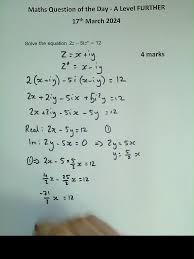 Maths Question of the Day - A Level FURTHER
17th March 2024
Solve the equation 2z – 5iz* = 12
4 marks
Z = x+iy
Z* = x-iy
2(x+iy) - 5i(x-iy) = 12
2x + 2iy - 5ix + 5i²y = 12
2x + 2iy - 5ix - 5y = 12
Real: 2x - 5y = 12 ①
Im: 2y - 5x = 0 ⇒ 2y = 5x
y = 5/2 x
① ⇒ 2x - 5×5/2 x = 12
4/2 x - 25/2 x = 12
-21/2 x = 12